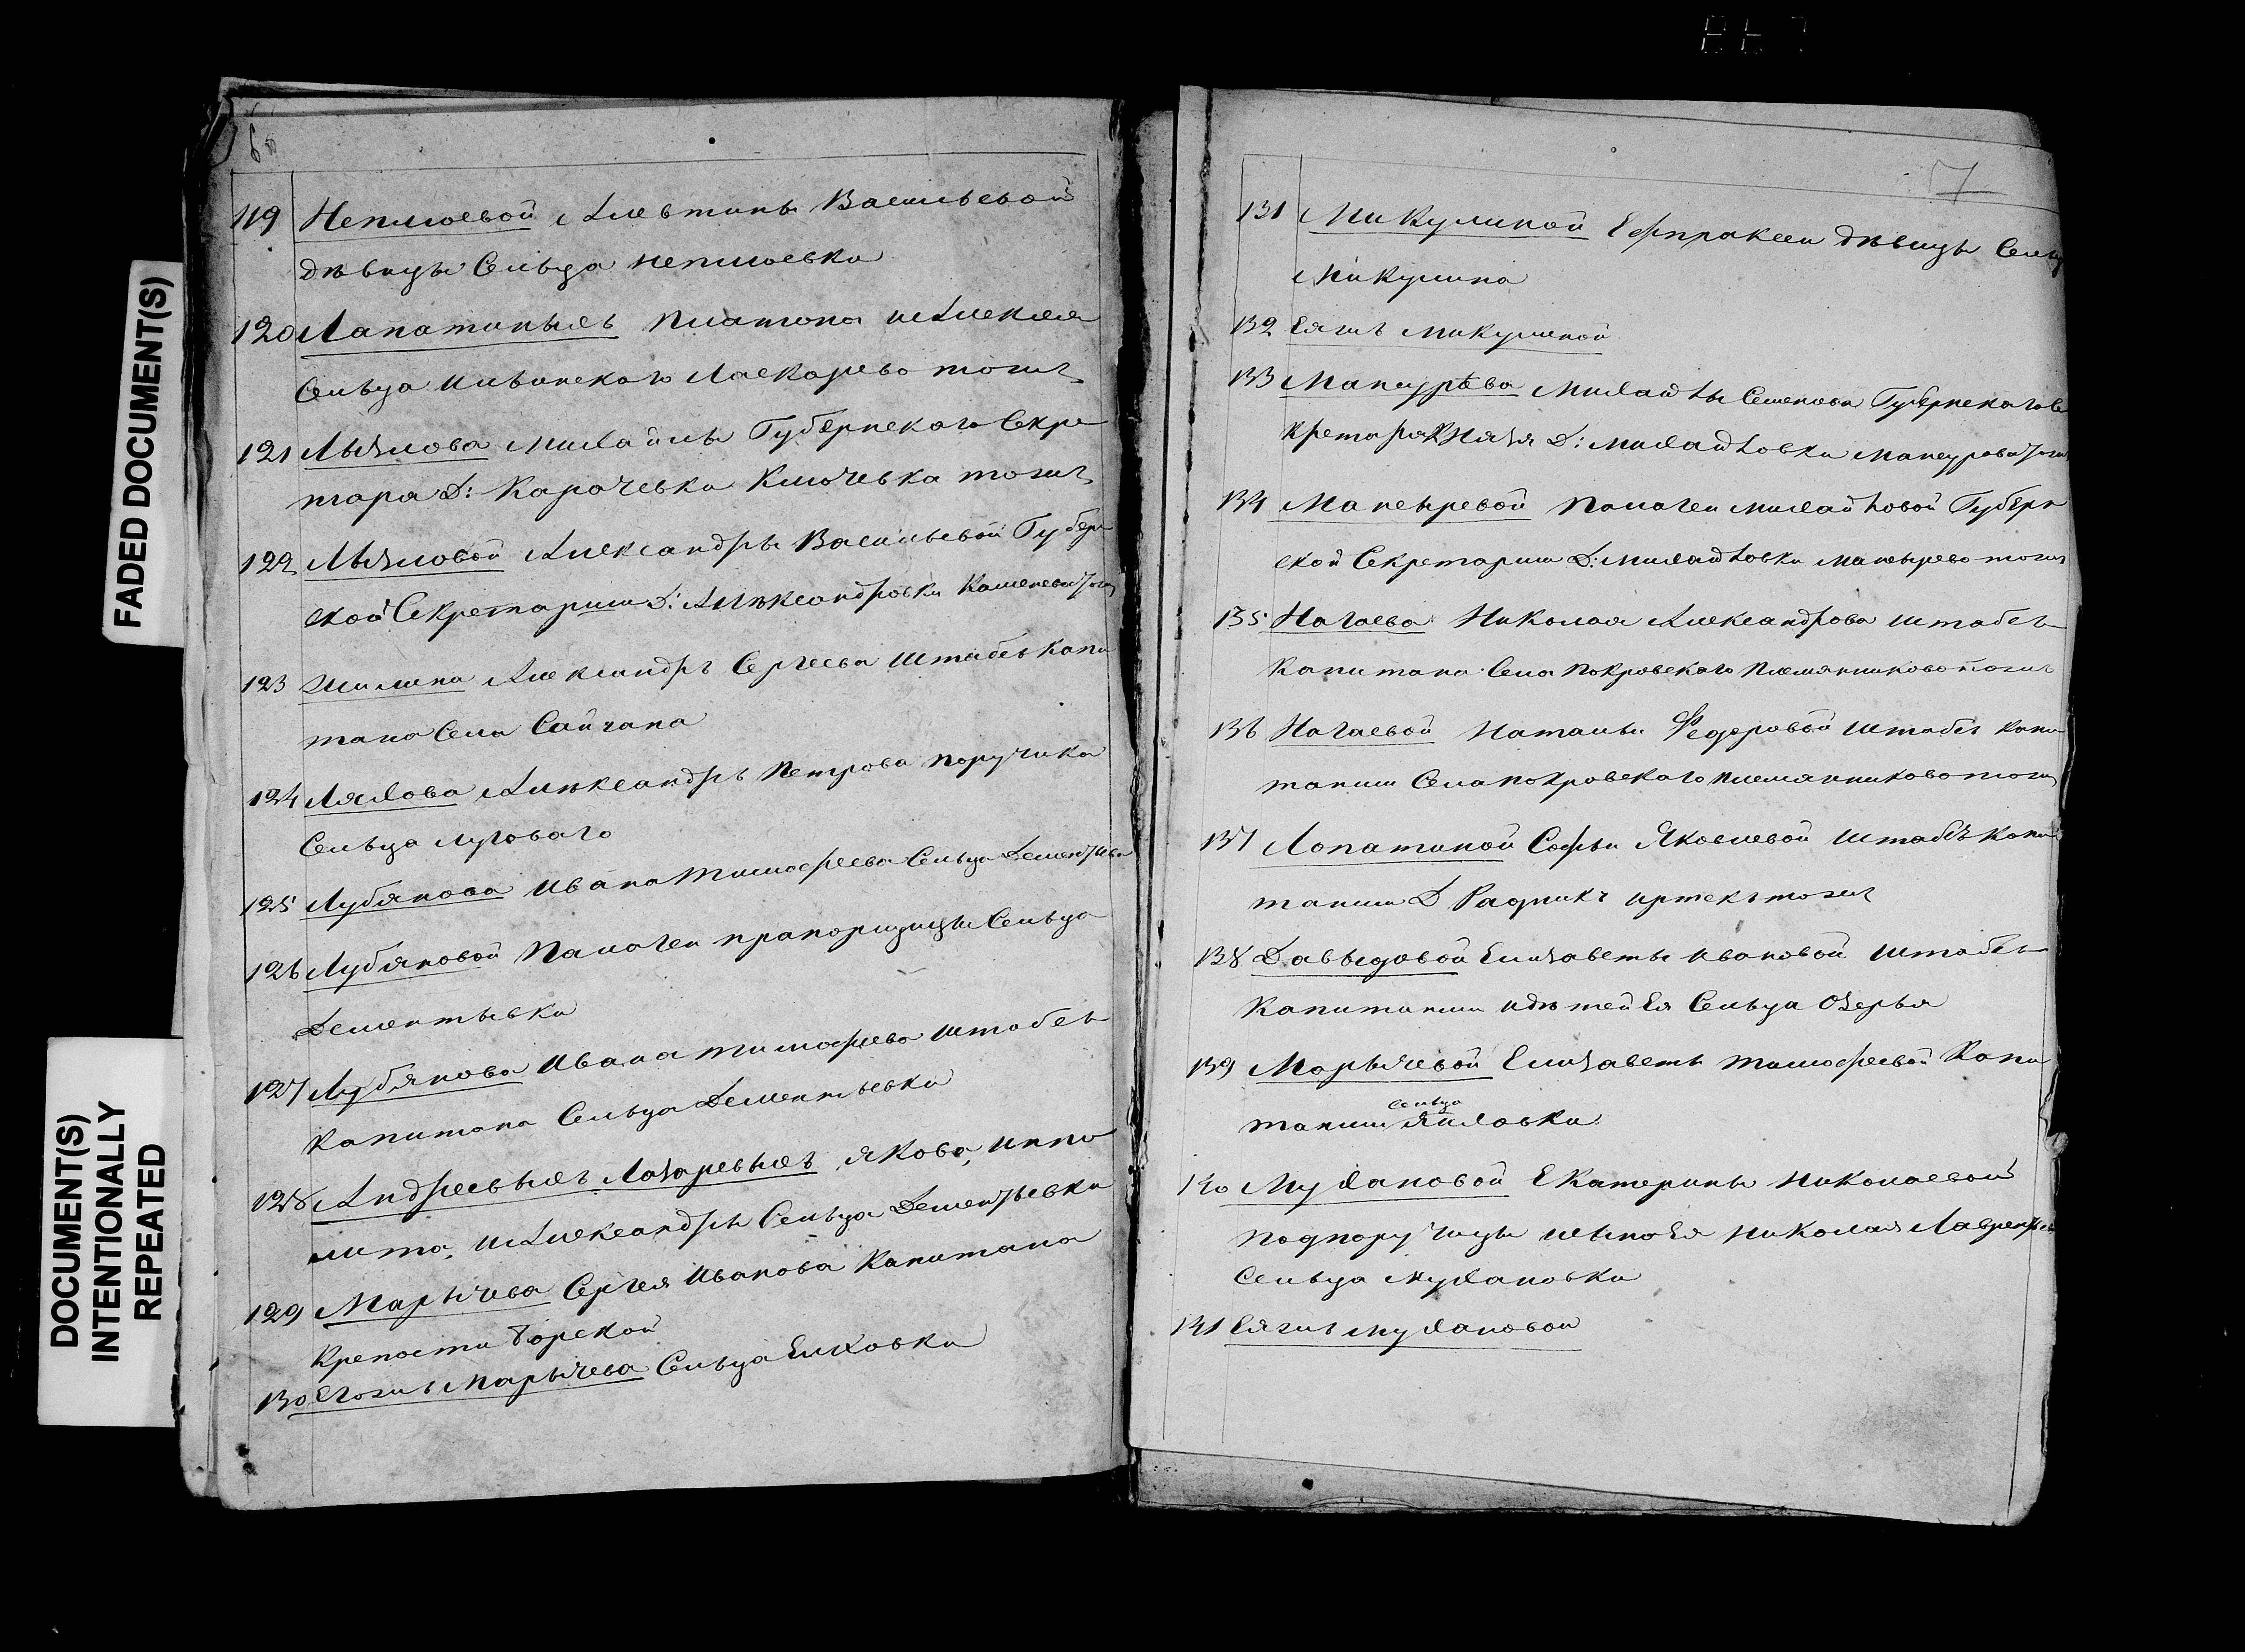 FADED DOCUMENT(S)
DOCUMENT(S)
INTENTIONALLY
REPEATED
119 Неплюевой Алевтины Васильевой
дѣвицы Сельца неплюевки
120 Лапатиныхъ Платона и Алексея
Сельца Ивинскаго Ласкарево тожъ
121 Лызлова Михайлы Губернскаго Секре
тара Д: Карачевки Ключевка тожъ
122 Лызловой Александры Васильевой Губерн
ской Секретарши Д: Алѣксандровки тожъ
123 Александръ Сергеева Штабсъ Капи
тана Села
124 Ляхова Алѣксандръ Петрова поручика
Сельца Луговаго
125 Лубянова Ивана Тимофеева Сельца Дементьевки
126 Лубяновой Палагеи прапорщицы Сельца
Дементьевки
127 Лубянова Ивана тимофеева штабсъ
капитана Сельца Дементьевки
128 Андреевыхъ Лазаревыхъ, якова, иппо
лита, и Александры Сельца Дементьевки
129 Марычева Сергея Иванова Капитана
Крепости борской
130 Егожъ Марычева Сельца Елховки
7
131 Микулиной Ефпраксеи дѣвицы Сельц
Микулина
132 Еяжъ Микулиной
133 Мансурѣва Семенова Губернскаго Се
кретаря Князя Д: Мансурова тожъ
134 Мансыревой Палагеи Губерн
ской Секретарши Д: Мансырево тожъ
135 Нагаева Николая Александрова штабсъ
Капитана Села Покровскаго Племянниково тожъ
136 Нагаевой Натальи Федоровой Штабсъ капи
танши Села покровскаго племянниково тожъ
137 Лопатиной Софьи Яковлевой Штабсъ Капи
танши Д иртекъ тожъ
138 Давыдовой Елизаветы Ивановой Штабсъ
Капитанши идѣтей Ея Сельца Озерья
139 Марычевой Елизаветы тимофеевой Капи
сельца
танши Елховки
140 Мухановой Екатерины Николаевой
подпоручицы исына Ея Николая Лаврентьев
Сельца Мухановки
141 Еяжъ Мухановой